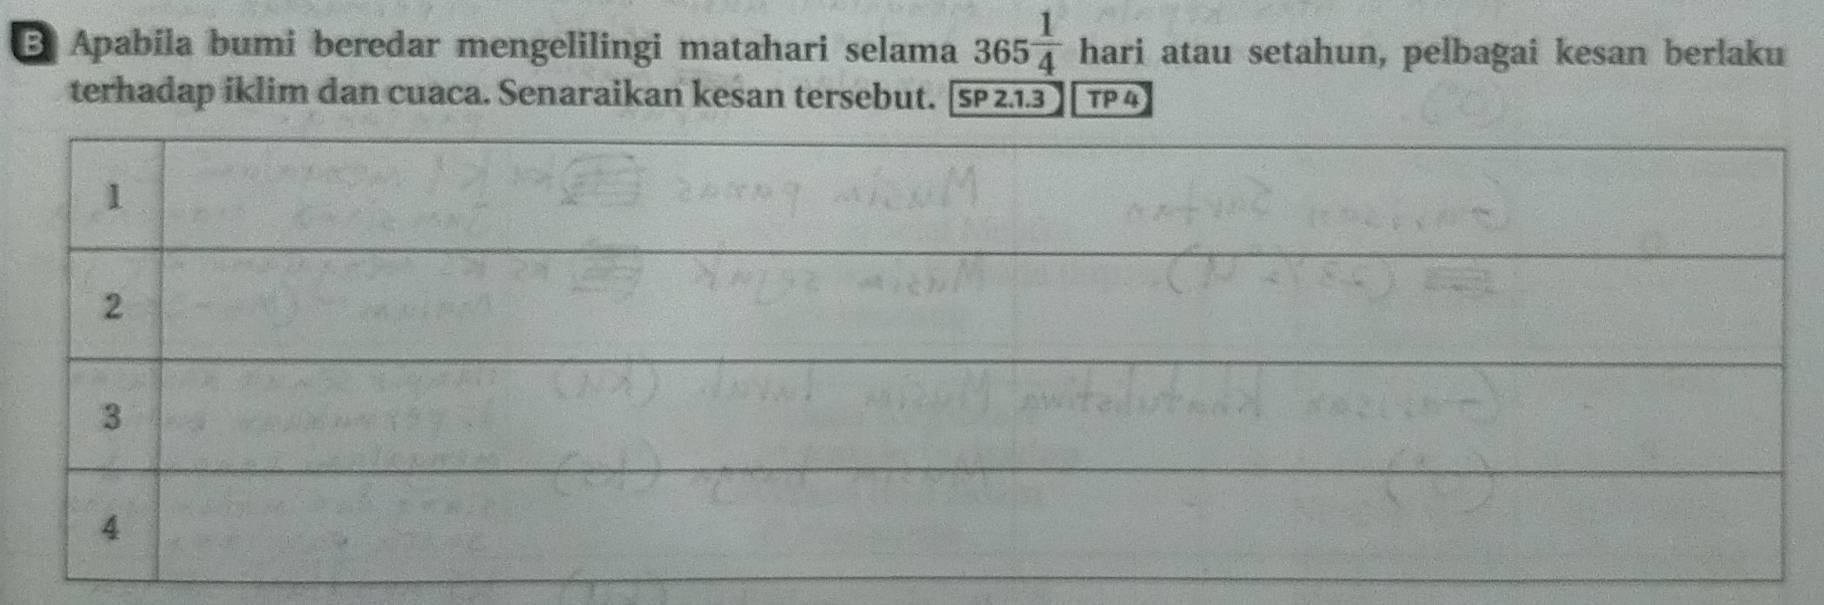 B Apabila bumi beredar mengelilingi matahari selama 365 1/4 hari atau setahun, pelbagai kesan berlaku
terhadap iklim dan cuaca. Senaraikan kesan tersebut. SP 2.1.3 TP 4
1
2
3
4